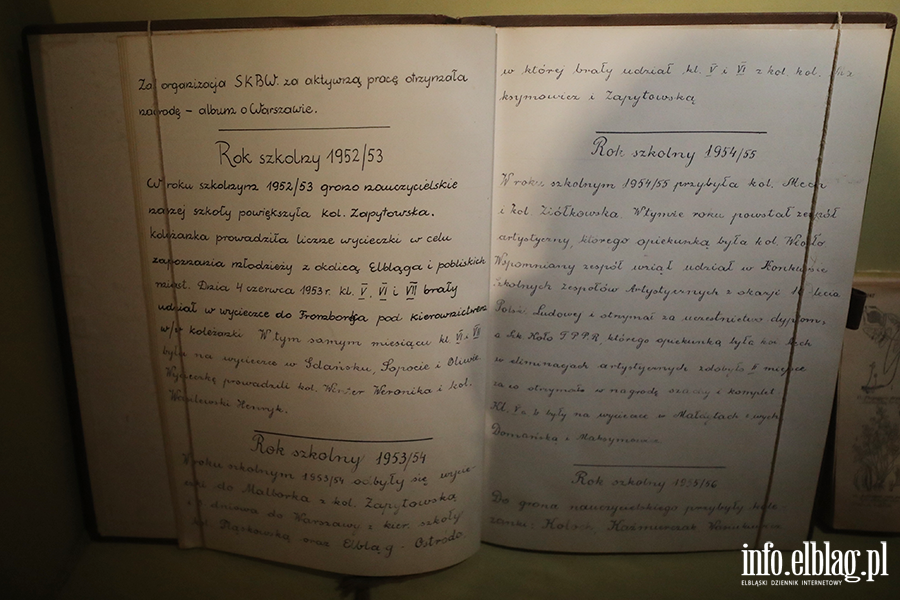 Za organizacja SKBW. za aktywną pracę otrzymała
nagrodę – album o Warszawie.
Rok szkolny 1952/53
W roku szkolnym 1952/53 grono nauczycielskie
naszej szkoły powiększyła kol. Zapytowska.
Koleżanka prowadziła liczne wycieczki w celu
zapoznania młodzieży z okolicą Elbląga i pobliskich
miast. Dnia 4 czerwca 1953 r. kl. V, VI i VII brały
udział w wycieczce do Fromborka pod kierownictwem
w/w koleżanki W tym samym miesiącu kl. VI i VII
była na wycieczce w Gdańsku, Sopocie i Oliwie.
Wycieczkę prowadzili kol. Winter Weronika i kol.
Wasilewski Henryk.
Rok szkolny 1953/54
W roku szkolnym 1953/54 odbyły się wyciecz-
ki do Malborka z kol. Zapytowską
i dniowa do Warszawy z kier. szkoły
kol. Piąskowską oraz Elbląg - Ostróda.
w której brały udział kl. V i VI z kol. kol.
ksymowicz i Zapytowską
Rok szkolny 1954/55
W roku szkolnym 1954/55 przybyła kol.
i kol. Ziółkowska. W tymże roku powstał zespół
artystyczny, którego opiekunką była kol.
Wspomniany zespół wziął udział w Konkursie
Szkolnych Zespołów Artystycznych z okazji 10 lecia
Polski Ludowej i otrzymał za uczestnictwo dyplom,
a Szk Koło TPPR, którego opiekunką była kol.
w eliminacjach artystycznych zdobyło II miejsce
za co otrzymało w nagrodę szachy i komplet
Kl. były na wycieczce w
Domańska i Maksymowicz
Rok szkolny 1955/56
Do grona nauczycielskiego przybyły kole-
żanki:
info.elblag.pl
ELBLĄSKI DZIENNIK INTERNETOWY